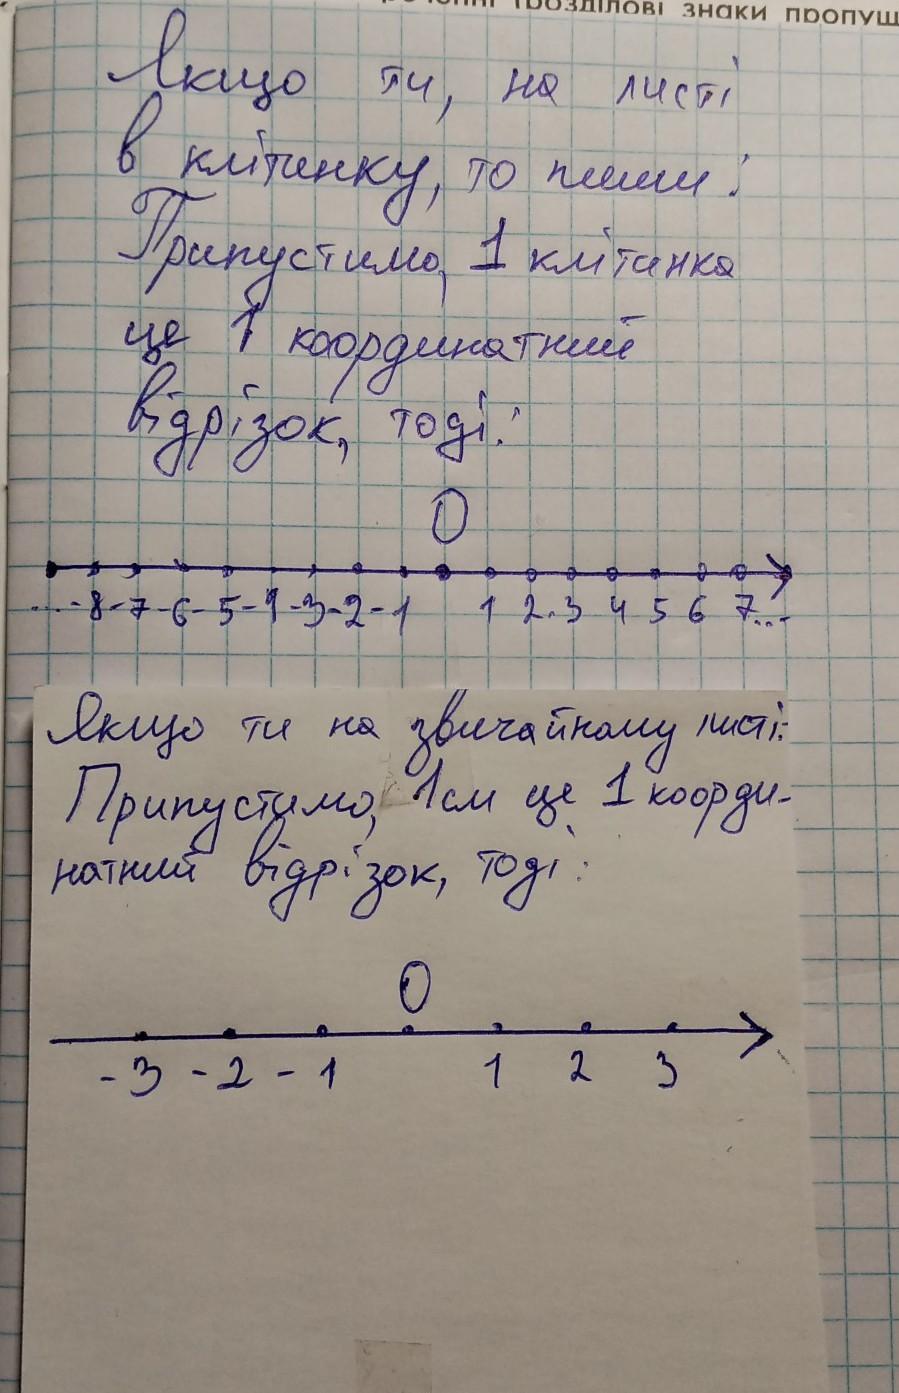 розділові знаки пропущ
Якщо ти, на листі
в клітинку, то пиши:
Припустимо, 1 клітинка
це 1 координатний
відрізок, тоді:
0
...-8-7-6-5-4-3-2-1 1 2 3 4 5 6 7...
Якщо ти на звичайному листі:
Припустимо, 1см це 1 коорди-
натний відрізок, тоді:
0
-3 -2 -1 1 2 3